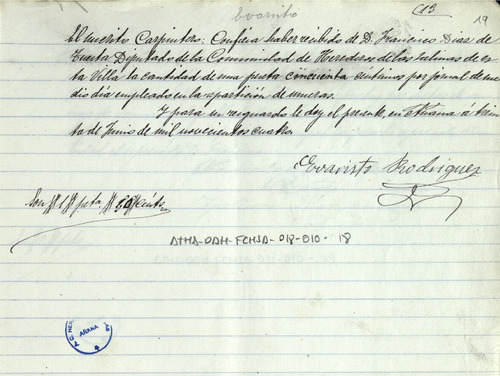 Evaristo
C13
19
El maestro Carpintero. Confiesa haber recibido de D. Francisco Diaz de
Tuesta Diputado de la Comunidad de Herederos de las Salinas de es-
ta Villa la cantidad de una peseta cincuenta centimos por jornal de me-
dio dia empleado en la repartición de mueras.
Y para su resguardo le doy el presente, en Añana á trein-
ta de Junio de mil novecientos cuatro.
Evaristo Rodriguez
Son # 1 # peta. # 50 # cénts
ATHA-DAH-FCHSA-018-010-18
AÑANA